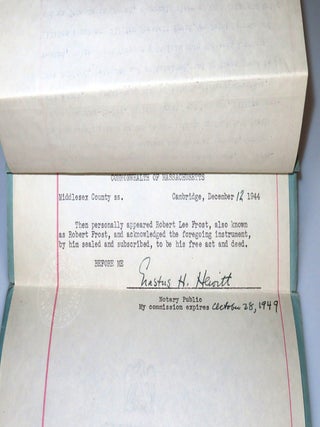 COMMONWEALTH OF MASSACHUSETTS
Middlesex County ss. Cambridge, December 12 1944
Then personally appeared Robert Lee Frost, also known
as Robert Frost, and acknowledged the foregoing instrument,
by him sealed and subscribed, to be his free act and deed.
BEFORE ME
Erastus H. Hewitt
Notary Public
My commission expires October 28, 1949